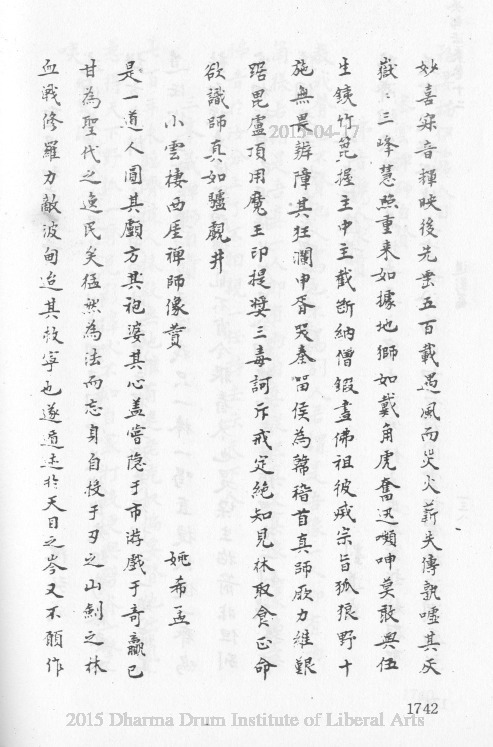 妙喜寂音輝映後先歪五百載遇風而災火薪失傳孰噓其灰
嶽〻三峰慧照重來如據地獅如戴角虎奮迅嚬呻莫敢與伍
生鐵竹箆握主中主截斷納僧鍜盡佛祖彼戕宗旨狐狼野干
施無畏辨障其狂瀾申胥哭秦留侯為韓稽首真師厥力維艱
踞毘盧頂用魔王印提獎三毒訶斥戒定絕知見林取食正命
欲識師真如驢覷井
小雲棲西厓禪師像贊
姚希孟
是一道人圓其顱方其袍婆其心盖嘗隐于市游戲于竒贏已
甘為聖代之逸民矣猛然為法而忘身自投于刃之山劍之林
血戰修羅力敵波旬迨其救寧也遂遁迹於天目之岑又不願作
1742
2015-04-17
2015 Dharma Drum Institute of Liberal Arts